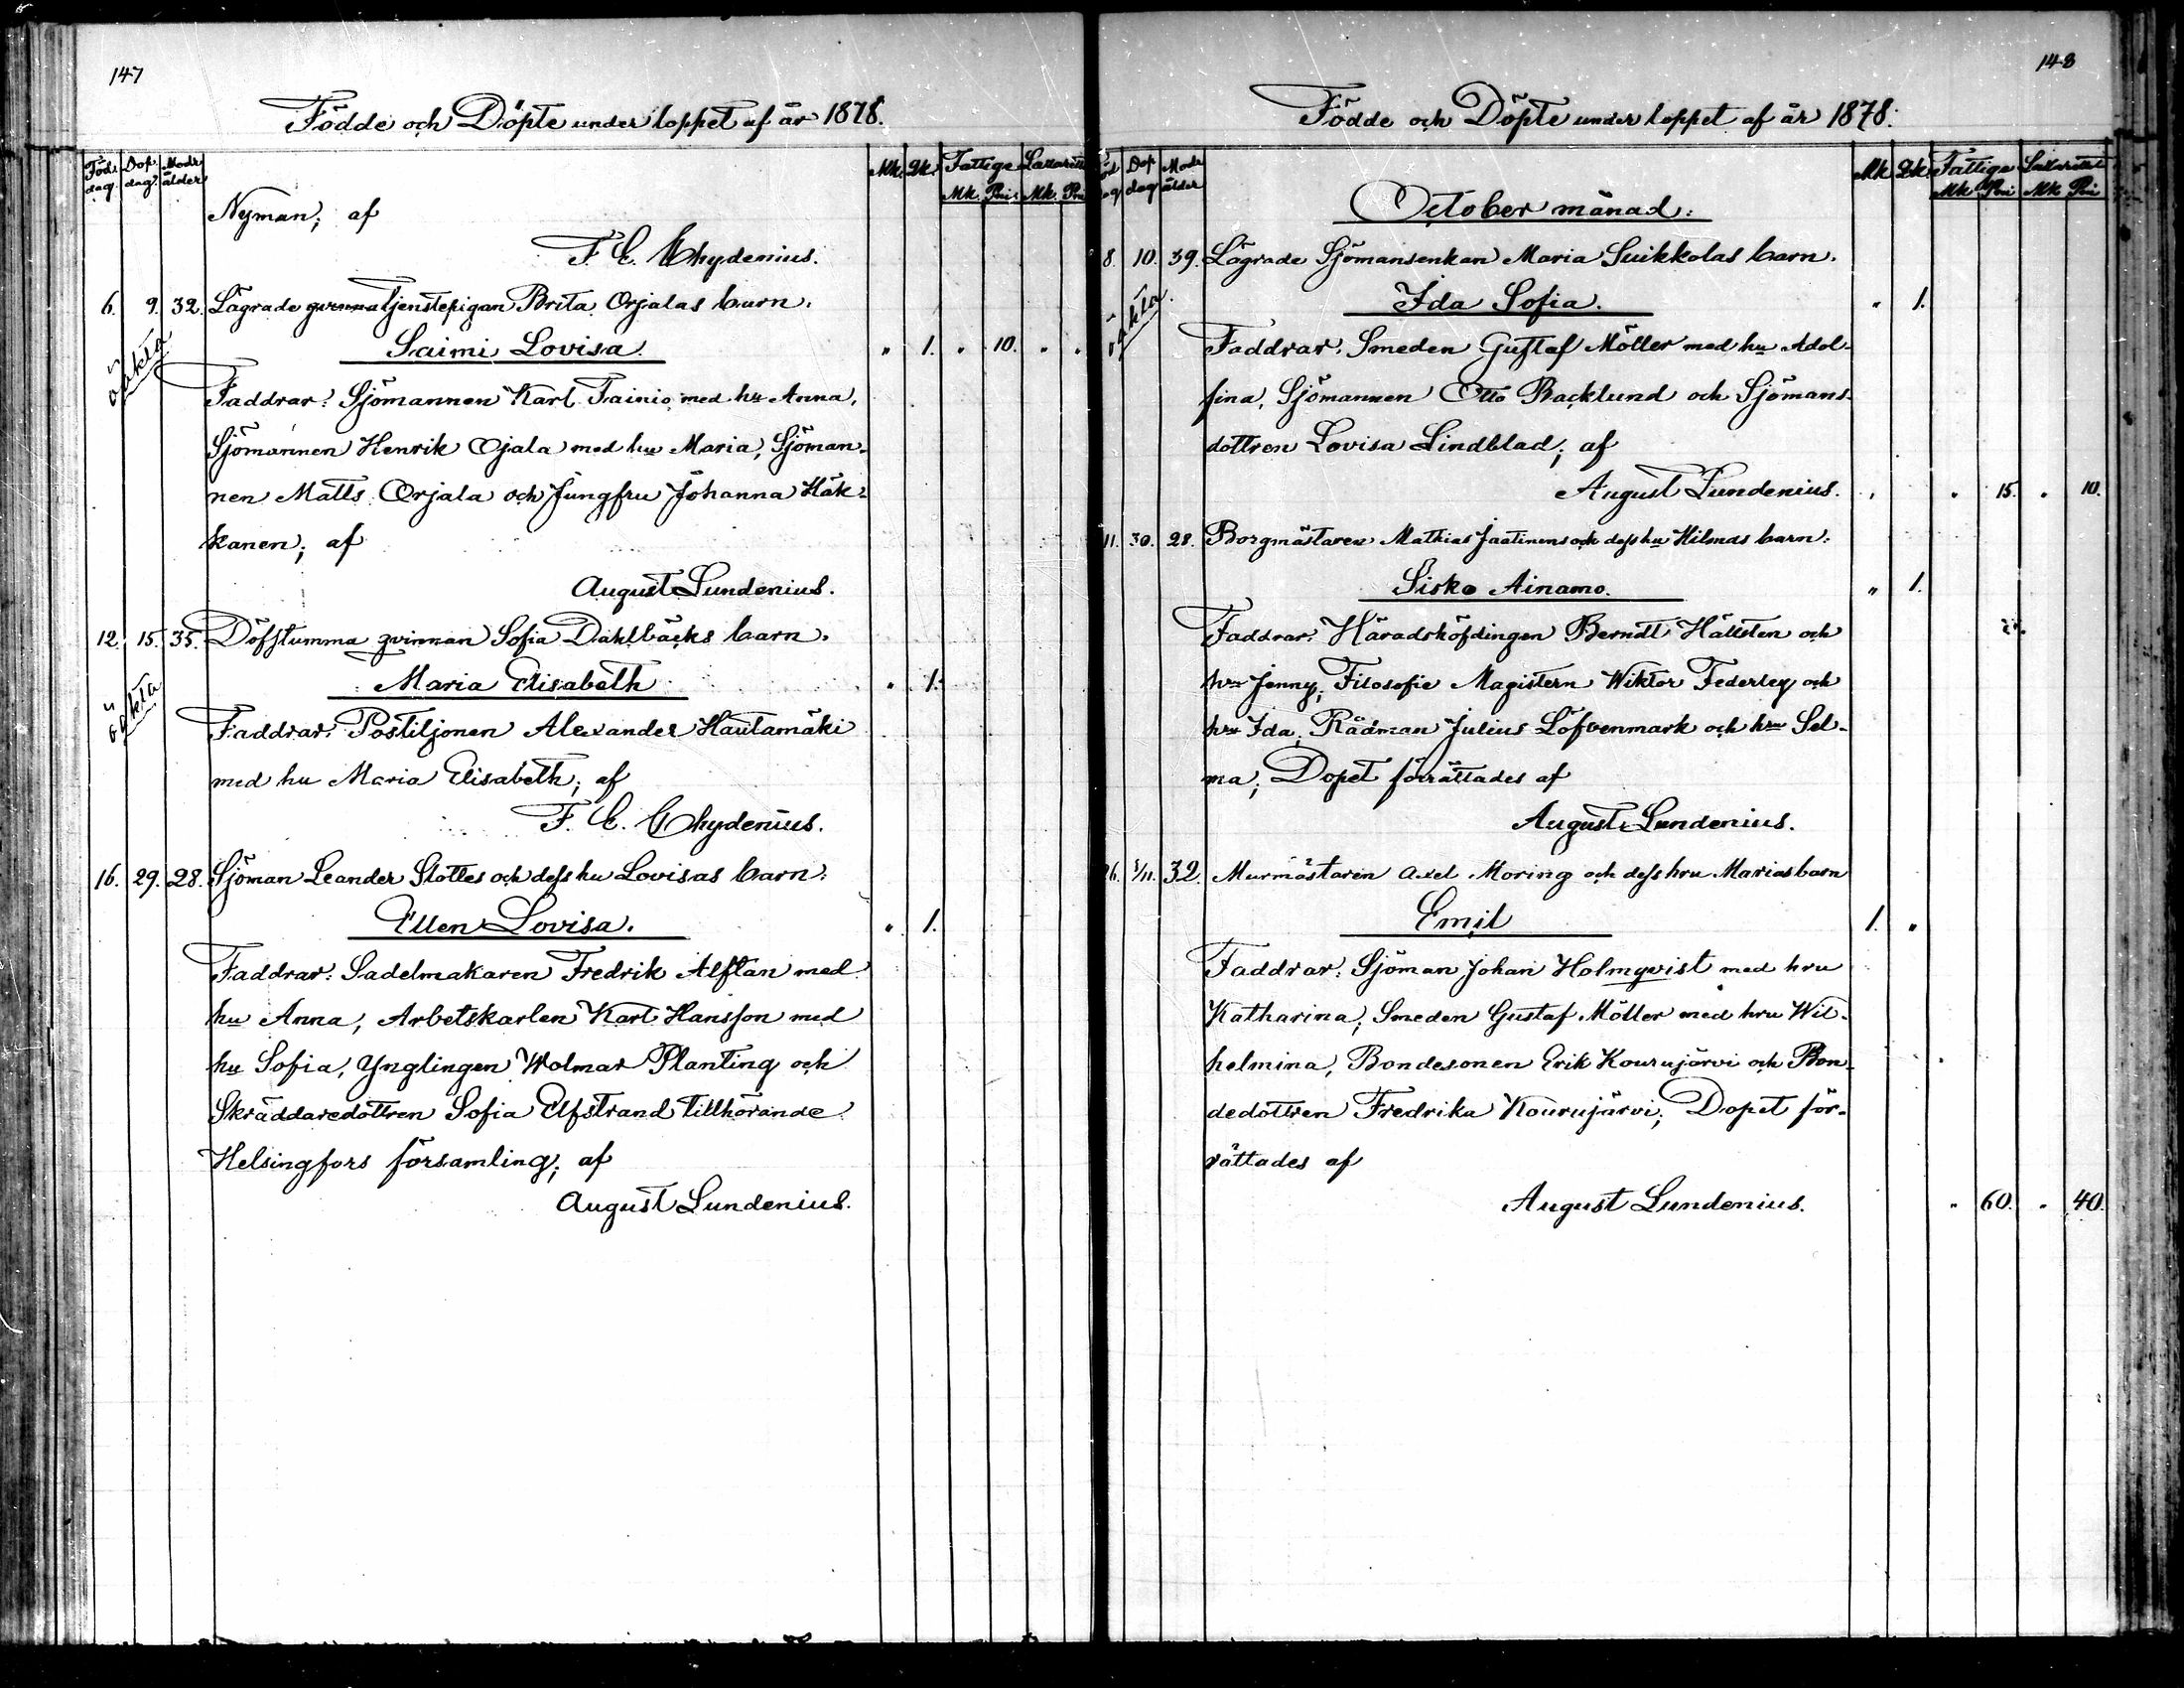 147
Födde och Döpte under loppet af år 1878.
Föd. dag. Dop. dag. Modr. ålder Mk. Qk. Fattige Mk. Pni. Lazarett Mk. Pni
Nyman; af
F. E. Chydenius.
6. 9. 32. Lägrade qvinna tjenstepigan Brita Orjalas barn.
oäkta
Saimi Lovisa. " 1. " 10. " "
Faddrar: Sjömannen Karl Tainio med hu Anna,
Sjömannen Henrik Ojala med hu Maria, Sjöman-
nen Matts Orjala och Jungfru Johanna Häk-
kanen; af
August Lundenius.
12. 15. 35. Döfstumma qvinnan Sofia Dahlbäcks barn.
oäkta
Maria Elisabeth " 1.
Faddrar: Postiljonen Alexander Hautamäki
med hu Maria Elisabeth; af
F. E. Chydenius.
16. 29. 28. Sjöman Leander Slottes och dess hu Lovisas barn:
Ellen Lovisa. " 1.
Faddrar: Sadelmakaren Fredrik Alftan med
hu Anna, Arbetskarlen Karl Hansson med
hu Sofia, Ynglingen Wolmar Planting och
Skräddaredottren Sofia Elfstrand tillhörande
Helsingfors församling; af
August Lundenius.
148
Födde och Döpte under loppet af år 1878.
Dop dag Modr ålder Mk Qk. Fattige Mk Pni Lazarettet Mk Pni
October månad:
8. 10. 39. Lägrade Sjömansenkan Maria Suikkolas barn.
oäkta
Ida Sofia. " 1.
Faddrar: Smeden Gustaf Möller med hu Adol-
fina, Sjömannen Otto Backlund och Sjömans-
dottren Lovisa Lindblad; af
August Lundenius. " 15. " 10.
11. 30. 28. Borgmästaren Mathias Jaatinens och dess hu Hilmas barn:
Sisko Ainamo. " 1.
Faddrar: Häradshöfdingen Berndt Hällsten och
hru Jenny, Filosofie Magistern Wiktor Federley och
hru Ida, Rådman Julius Löfvenmark och hru Sel-
ma; Dopet förrättades af
August Lundenius.
26. 8/11. 32. Murmästaren Axel Moring och dess hru Marias barn
Emil 1. "
Faddrar: Sjöman Johan Holmqvist med hru
Katharina; Smeden Gustaf Möller med hru Wil-
helmina, Bondesonen Erik Kourujärvi och Bon-
dedottren Fredrika Kourujärvi; Dopet för-
rättades af
August Lundenius. " 60. " 40.